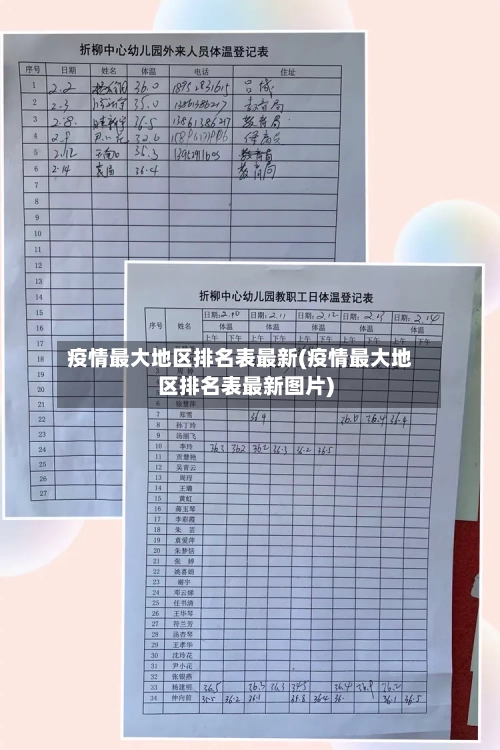 折柳中心幼儿园外来人员体温登记表
序号 日期 姓名 体温 电话 住址
1 2.2 36.0 18952831615 吕城
2 2.3 35.0 13861386217 教育局
3 2.8 36.5 13861386217 教育局
4 2.9 32.6
5 2.12 35.3 教育局
6 2.14 袁局 36.4 教育局
7
8
9
10
11
12
13
14
15
16
20
21
22
23
24
25
26
27
折柳中心幼儿园教职工日体温登记表
序号 姓名 日期:2.10 日期:2.11 日期:2.12 日期:2.13 日期:2.14
体温 体温 体温 体温 体温
上午 下午 上午 下午 上午 下午 上午 下午 上午 下午
疫情最大地区排名表最新(疫情最大地
区排名表最新图片)
6 徐慧萍
7 郑雪 36.9 36.0 36.4 36.4
8 孙丁玲
9 汤丽飞
10 李玲 36.3 36.2 36.2 36.3 36.2 36.5
11 贡慧艳
12 吴青云
13 周珵
14 王璐
15 黄虹
16 蒋玉琴
17 李彩霞
18 朱芸
19 袁爱萍
20 朱梦恬
21 张婷
22 姚喜娟
23 谢宇
24 邓云娣
25 任书清
26 王华琴
27 符兰芳
28 汤杏琴
29 王孝华
30 沈玲花
31 尹小花
32 张银燕
33 杨建明 36.5 36.3 36.3 36.4 36.2
34 仲向前 35.5 36.2 36.1 35.8 36.4 36. 36.1 36.5